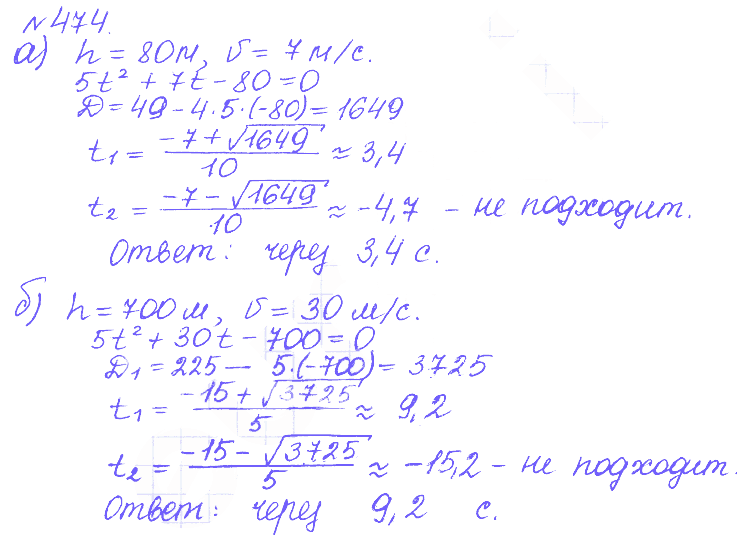 №474.
а) h = 80м, υ = 7 м/с.
5t² + 7t - 80 = 0
Д = 49 - 4·5·(-80) = 1649
t₁ = (-7 + √1649)/10 ≈ 3,4
t₂ = (-7 - √1649)/10 ≈ -4,7 - не подходит.
Ответ: через 3,4 с.
б) h = 700 м, υ = 30 м/с.
5t² + 30t - 700 = 0
Д₁ = 225 - 5·(-700) = 3725
t₁ = (-15 + √3725)/5 ≈ 9,2
t₂ = (-15 - √3725)/5 ≈ -15,2 - не подходит.
Ответ: через 9,2 с.